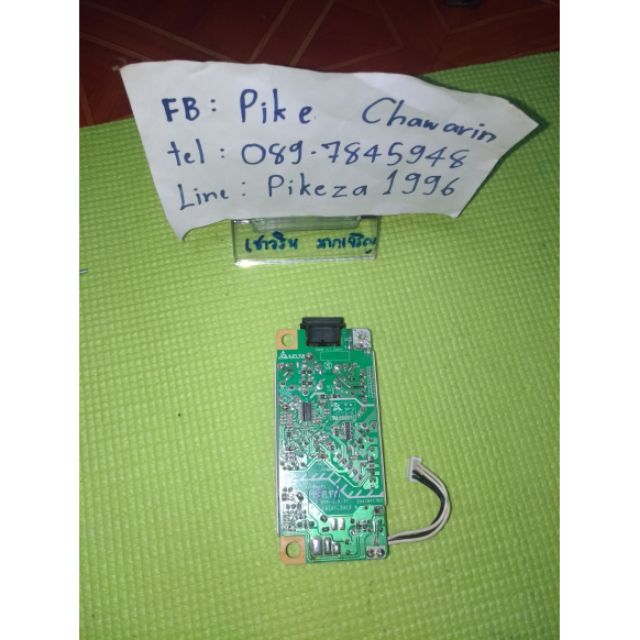 FB: Pike Chawarin
tel: 089-7845948
Line: Pikeza1996
เชาวริน มากเจริญ